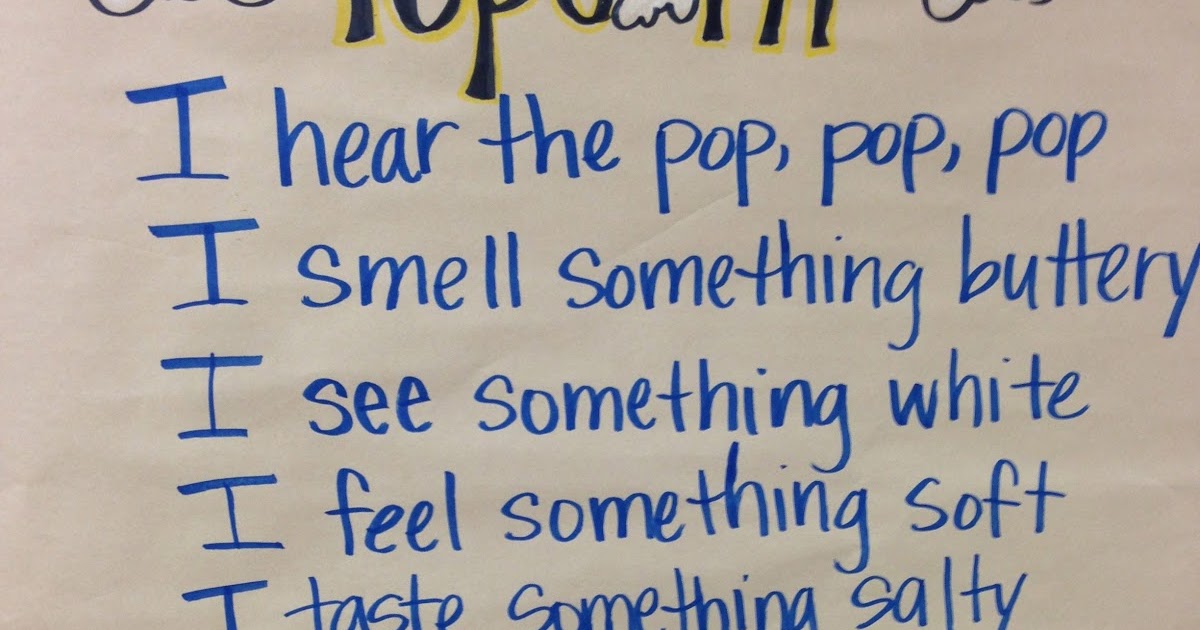 Popcorn
I hear the pop, pop, pop
I smell something buttery
I see something white
I feel something soft
I taste something salty